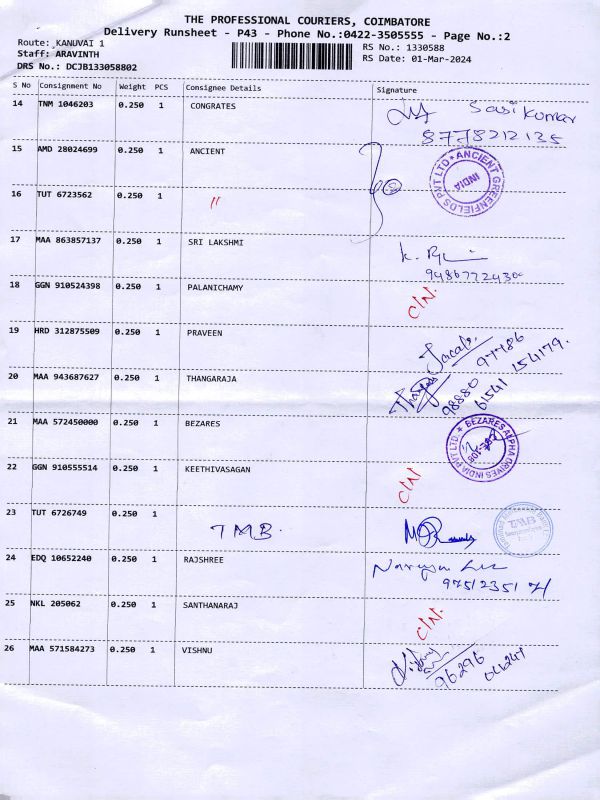 THE PROFESSIONAL COURIERS, COIMBATORE
Delivery Runsheet - P43 - Phone No.:0422-3505555 - Page No.:2
Route: KANUVAI 1
Staff: ARAVINTH
DRS No.: DCJB133058802
RS No.: 1330588
RS Date: 01-Mar-2024
S No Consignment No Weight PCS Consignee Details Signature
14 TNM 1046203 0.250 1 CONGRATES Sasi kumar
8778212135
15 AMD 28024699 0.250 1 ANCIENT
ANCIENT GREENFIELDS PVT LTD INDIA
16 TUT 6723562 0.250 1 〃
17 MAA 863857137 0.250 1 SRI LAKSHMI
9486772430
18 GGN 910524398 0.250 1 PALANICHAMY C/N.
19 HRD 312875509 0.250 1 PRAVEEN
97786
154179.
20 MAA 943687627 0.250 1 THANGARAJA
98880
61541
21 MAA 572450000 0.250 1 BEZARES
BEZARES ALPHA DRIVES INDIA PVT LTD
22 GGN 910555514 0.250 1 KEETHIVASAGAN C/N
23 TUT 6726749 0.250 1 TMB
TMB
24 EDQ 10652240 0.250 1 RAJSHREE
25 NKL 205062 0.250 1 SANTHANARAJ C/N.
26 MAA 571584273 0.250 1 VISHNU
96296